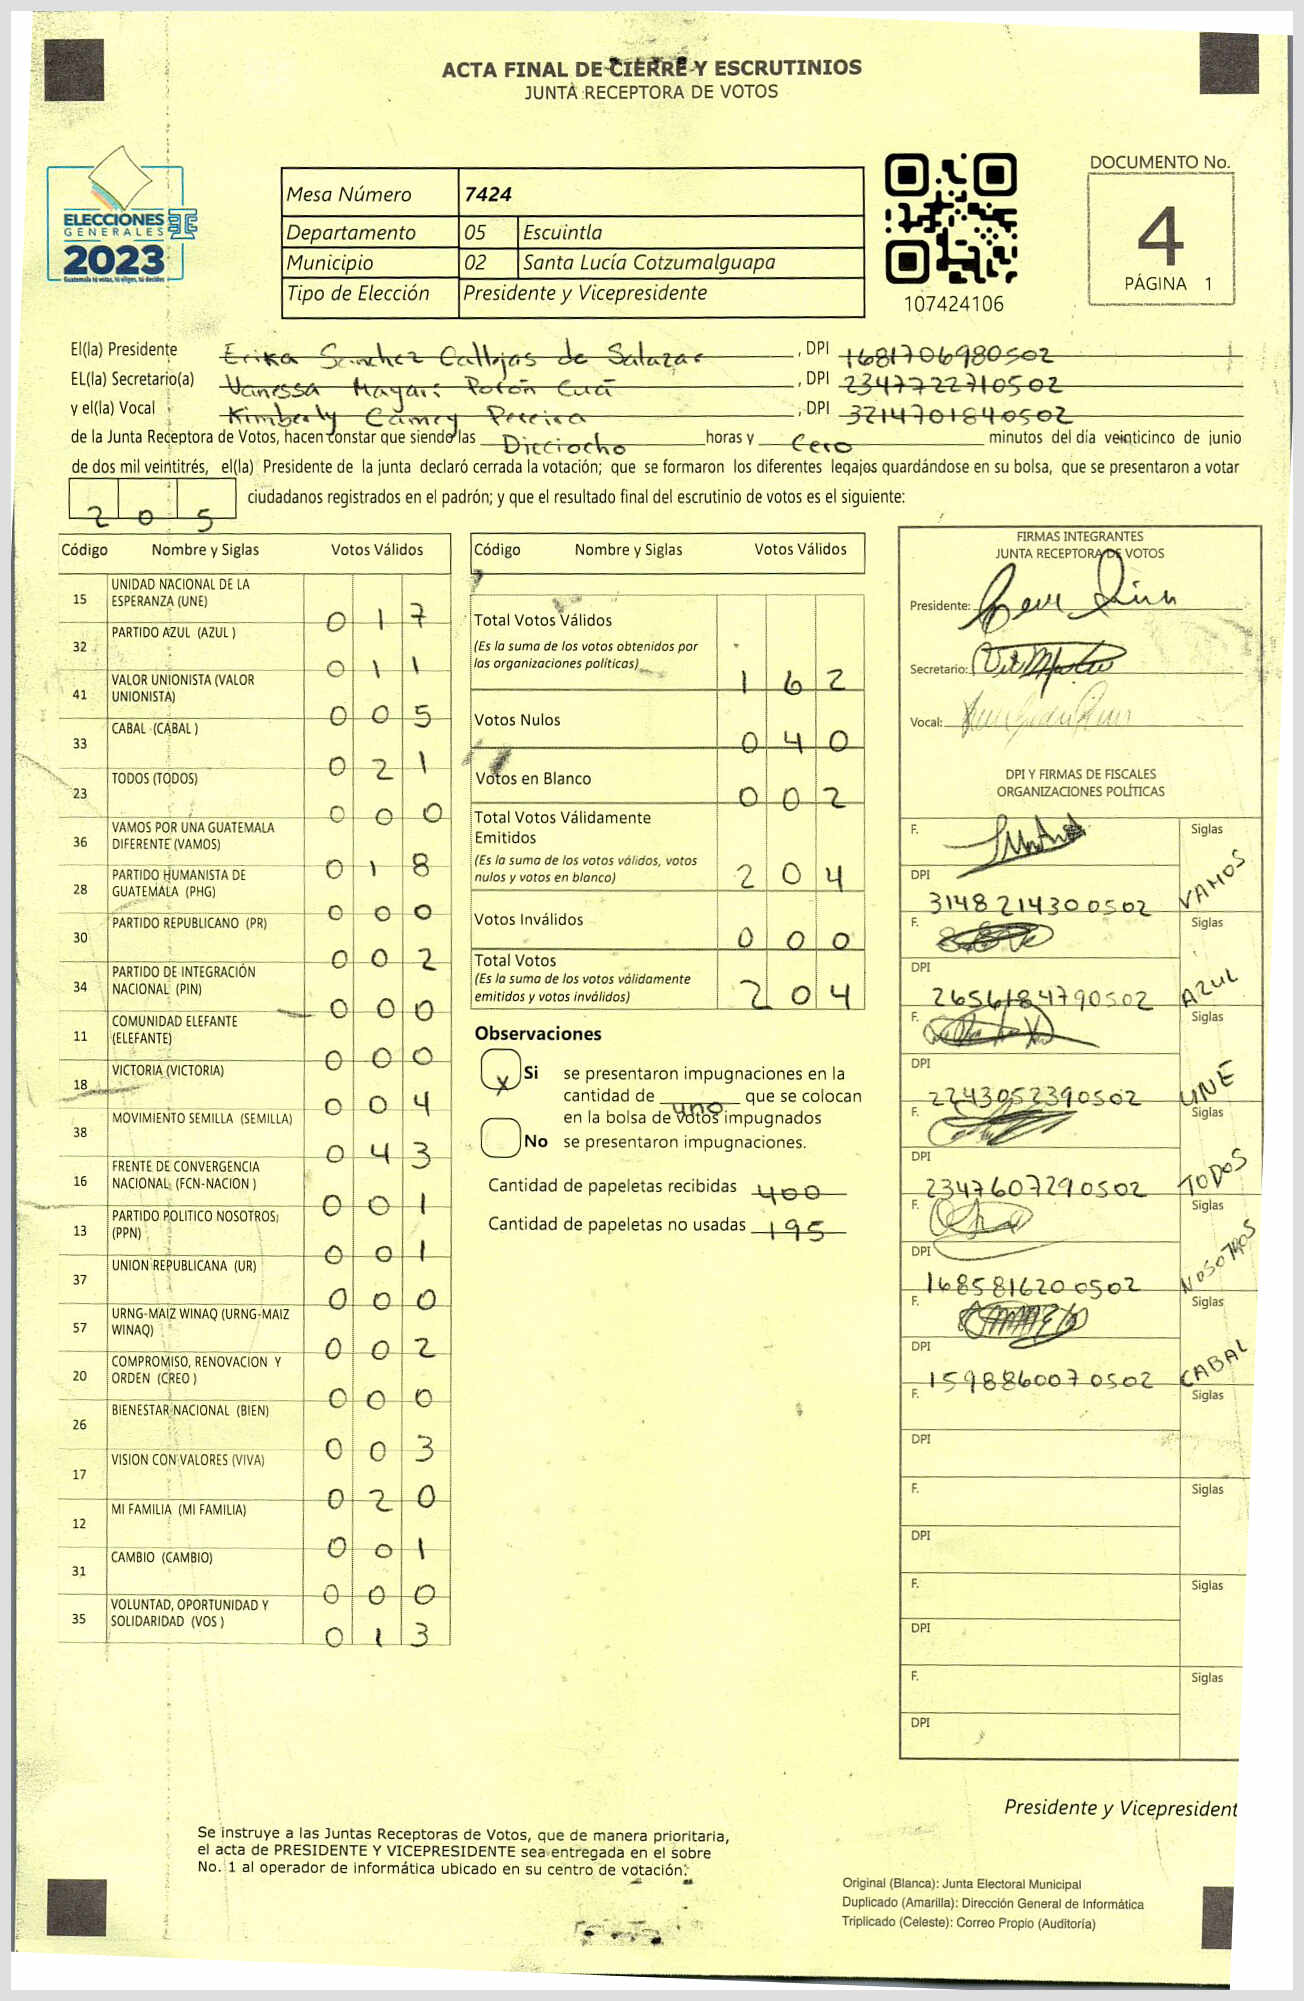 ACTA FINAL DE CIERRE Y ESCRUTINIOS
JUNTA RECEPTORA DE VOTOS
ELECCIONES
GENERALES
2023
Guatemala tú votas, tú eliges, tú decides
Mesa Número 7424
Departamento 05 Escuintla
Municipio 02 Santa Lucía Cotzumalguapa
Tipo de Elección Presidente y Vicepresidente
107424106
DOCUMENTO No.
4
PÁGINA 1
El(la) Presidente Erika Sanchez Callejas de Salazar, DPI 1681706980502
EL(la) Secretario(a) Vanessa Mayari Potón Cuá, DPI 2347722710502
y el(la) Vocal Kimberly Camey Pereira, DPI 3214701840502
de la Junta Receptora de Votos, hacen constar que siendo las Dieciocho horas y Cero minutos del día veinticinco de junio
de dos mil veintitrés, el(la) Presidente de la junta declaró cerrada la votación; que se formaron los diferentes legajos guardándose en su bolsa, que se presentaron a votar
205 ciudadanos registrados en el padrón; y que el resultado final del escrutinio de votos es el siguiente:
Código Nombre y Siglas Votos Válidos
15 UNIDAD NACIONAL DE LA ESPERANZA (UNE) 017
32 PARTIDO AZUL (AZUL ) 011
41 VALOR UNIONISTA (VALOR UNIONISTA) 005
33 CABAL (CABAL ) 021
23 TODOS (TODOS) 000
36 VAMOS POR UNA GUATEMALA DIFERENTE (VAMOS) 018
28 PARTIDO HUMANISTA DE GUATEMALA (PHG) 000
30 PARTIDO REPUBLICANO (PR) 002
34 PARTIDO DE INTEGRACIÓN NACIONAL (PIN) 000
11 COMUNIDAD ELEFANTE (ELEFANTE) 000
18 VICTORIA (VICTORIA) 004
38 MOVIMIENTO SEMILLA (SEMILLA) 043
16 FRENTE DE CONVERGENCIA NACIONAL (FCN-NACION ) 001
13 PARTIDO POLITICO NOSOTROS (PPN) 001
37 UNION REPUBLICANA (UR) 000
57 URNG-MAIZ WINAQ (URNG-MAIZ WINAQ) 002
20 COMPROMISO, RENOVACION Y ORDEN (CREO ) 000
26 BIENESTAR NACIONAL (BIEN) 003
17 VISION CON VALORES (VIVA) 020
12 MI FAMILIA (MI FAMILIA) 001
31 CAMBIO (CAMBIO) 000
35 VOLUNTAD, OPORTUNIDAD Y SOLIDARIDAD (VOS ) 013
Código Nombre y Siglas Votos Válidos
Total Votos Válidos 162
(Es la suma de los votos obtenidos por
las organizaciones políticas)
Votos Nulos 040
Votos en Blanco 002
Total Votos Válidamente
Emitidos 204
(Es la suma de los votos válidos, votos
nulos y votos en blanco)
Votos Inválidos 000
Total Votos 204
(Es la suma de los votos válidamente
emitidos y votos inválidos)
Observaciones
X Si se presentaron impugnaciones en la
cantidad de uno que se colocan
en la bolsa de votos impugnados
No se presentaron impugnaciones.
Cantidad de papeletas recibidas 400
Cantidad de papeletas no usadas 195
FIRMAS INTEGRANTES
JUNTA RECEPTORA DE VOTOS
Presidente:
Secretario:
Vocal:
DPI Y FIRMAS DE FISCALES
ORGANIZACIONES POLÍTICAS
F. Siglas
DPI 3148214300502 VAMOS
F. Siglas
DPI 2656184790502 AZUL
F. Siglas
DPI 2243052390502 UNE
F. Siglas
DPI 2347607290502 TODOS
F. Siglas
DPI 1685816200502 NOSOTROS
F. Siglas
DPI 1598860070502 CABAL
F. Siglas
DPI
F. Siglas
DPI
F. Siglas
DPI
F. Siglas
DPI
Presidente y Vicepresident
Se instruye a las Juntas Receptoras de Votos, que de manera prioritaria,
el acta de PRESIDENTE Y VICEPRESIDENTE sea entregada en el sobre
No. 1 al operador de informática ubicado en su centro de votación.
Original (Blanca): Junta Electoral Municipal
Duplicado (Amarilla): Dirección General de Informática
Triplicado (Celeste): Correo Propio (Auditoría)